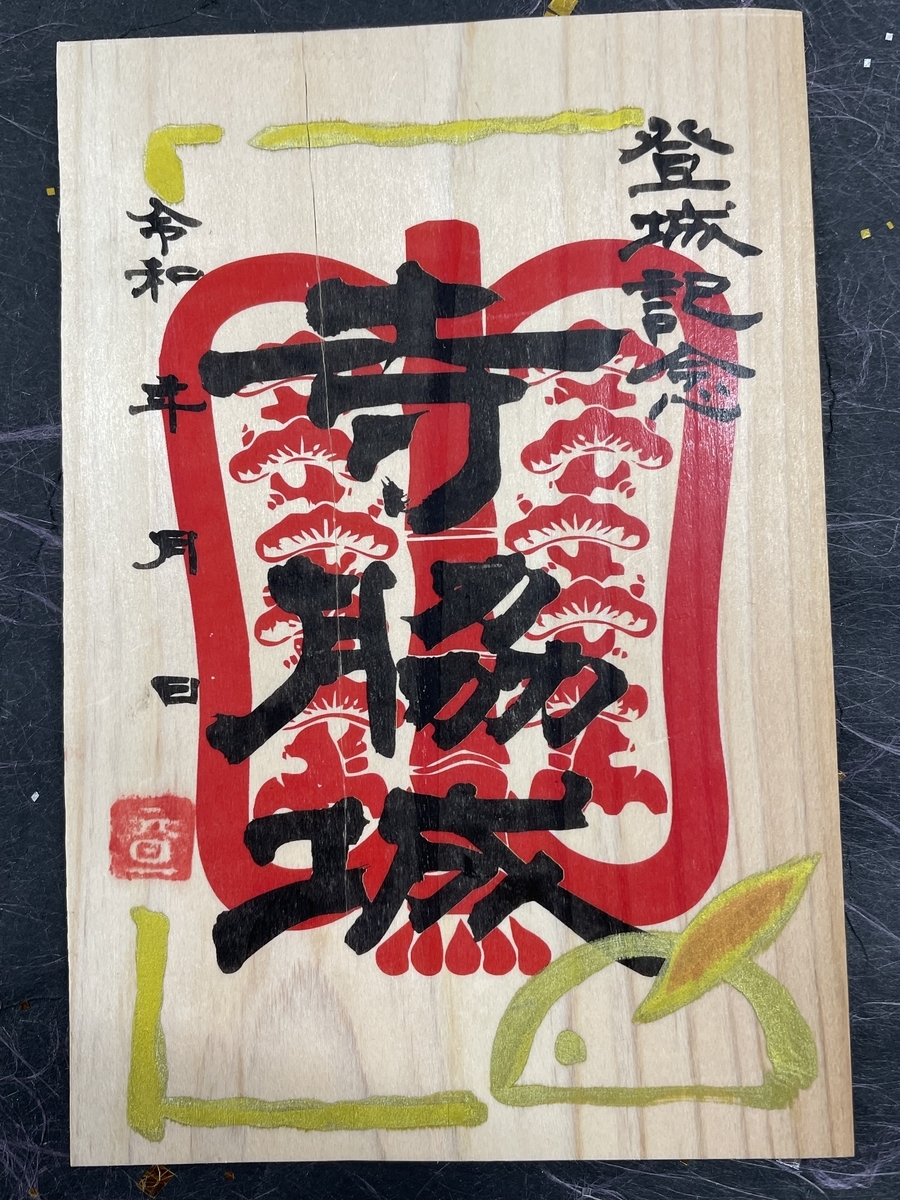 登城記念
寺脇城
令和 年 月 日